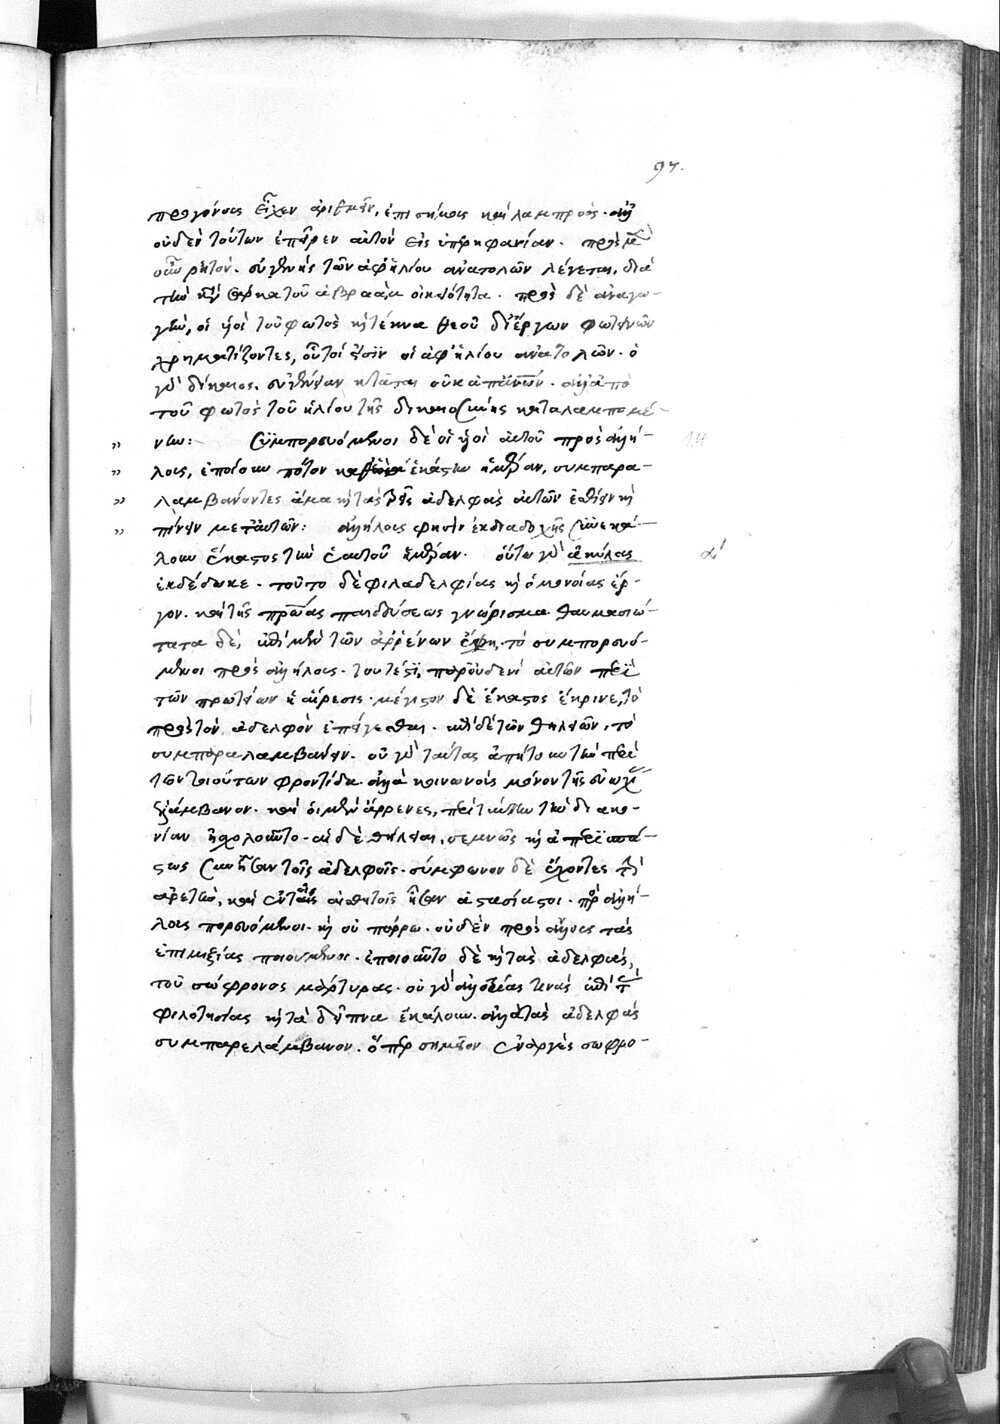 97.
προγόνους εἶχεν ἀριθμεῖν, ἐπισήμους καὶ λαμπρούς. ἀλλ'
οὐδὲν τούτων ἐπῆρεν αὐτὸν εἰς ὑπερηφανίαν. πρὸς μὲν
οὖν ῥητὸν. εὐγενὴς τῶν ἀφ' ἡλίου ἀνατολῶν λέγεται, διὰ
τὴν πρὸς τοῦ ἀβραὰμ οἰκειότητα. πρὸς δὲ ἀναγω-
γὴν, οἱ υἱοὶ τοῦ φωτὸς καὶ τέκνα θεοῦ δι' ἔργων φωτεινῶν
χρηματίζοντες, οὗτοί εἰσιν οἱ ἀφ' ἡλίου ἀνατολῶν. ὁ
γὰρ δίκαιος. εὐγένειαν κτᾶται οὐκ ἀπ' ἀν̅ω̅ν. ἀλλ' ἀπὸ
τοῦ φωτὸς τοῦ ἡλίου τῆς δικαιοσύνης καταλαμπομέ-
„ νην: Συμπορευόμενοι δὲ οἱ υἱοὶ αὐτοῦ πρὸς ἀλλή- 14
„ λους, ἐποίουν πότον καθ' ἑκάστην ἡμέραν, συμπαρα-
„ λαμβάνοντες ἅμα καὶ τὰς τρεῖς ἀδελφὰς αὐτῶν ἐσθίειν καὶ
„ πίνειν μετ' αὐτῶν: ἀλλήλους φησὶν ἐκ διαδοχῆς συνεκά-
λουν ἕκαστος τὴν ἑαυτοῦ ἡμέραν. οὕτω γὰρ ἀκύλας α'
ἐκδέδωκε. τοῦτο δὲ φιλαδελφίας καὶ ὁμονοίας ἔρ-
γον. καὶ τῆς πατρῴας παιδεύσεως γνώρισμα. θαυμασιώ-
τατα δὲ, ἐπὶ μὲν τῶν ἀρρένων ἔφη, τὸ συμπορευό-
μενοι πρὸς ἀλλήλους. τουτέστι, παρ' οὐδενὶ αὐτῶν περὶ
τῶν πρωτείων ἡ αἵρεσις. μέγιστον δὲ ἕκαστος ἔκρινε, τὸ
πρὸς τὸν ἀδελφὸν ἐπείγεσθαι. ἐπὶ δὲ τῶν θηλειῶν, τὸ
συμπαραλαμβάνειν. οὐ γὰρ ταύτας ἀπῄτουν τὴν περὶ
τῶν τοιούτων φροντίδα. ἀλλὰ κοινωνοὺς μόνον τῆς εὐωχί
ἐλάμβανον. καὶ οἱ μὲν ἄρρενες, περὶ τὴν διακο-
νίαν ἠσχολοῦντο. αἱ δὲ θήλειαι, σεμνῶς καὶ ἀπερισπά-
στως συνῆσαν τοῖς ἀδελφοῖς. σύμφωνον δὲ ἔχοντες τὴν
ἀρετὴν, καὶ ἐν τοῖς αἰσθητοῖς ἦσαν ἀστασίαστοι. πρὸς ἀλλή-
λους πορευόμενοι. καὶ οὐ πόρρω. οὐδὲν πρὸς ἄλλους τὰς
ἐπιμιξίας ποιούμενοι. ἐποιοῦντο δὲ καὶ τὰς ἀδελφὰς,
τοῦ σώφρονος μάρτυρας. οὐ γὰρ ἀλλοτρίας τινὰς ἐπὶ τὰς
φιλοτησίας καὶ τὰ δεῖπνα ἐκάλουν. ἀλλὰ τὰς ἀδελφὰς
συμπαρελάμβανον. ὅπερ σημεῖον ἐναργὲς σωφρο-